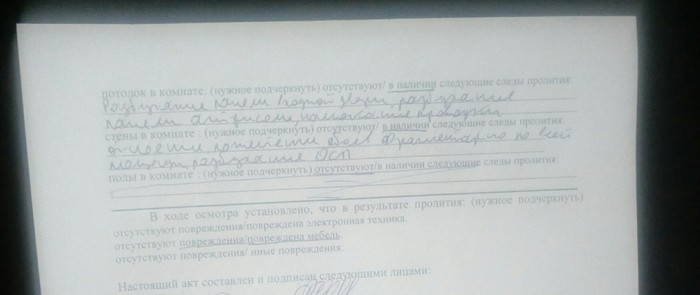 потолок в комнате: (нужное подчеркнуть) отсутствуют/ в наличии следующие следы пролития:
Разбухание панели входной двери, разбухание
панели антресоли, намокание проводки
стены в комнате : (нужное подчеркнуть) отсутствуют/ в наличии следующие следы пролития:
отслоение, пожелтение обоев фрагментарно по всей
площади, разбухание ОСП
полы в комнате : (нужное подчеркнуть) отсутствуют/в наличии следующие следы пролития:
В ходе осмотра установлено, что в результате пролития: (нужное подчеркнуть)
отсутствуют повреждения/повреждена электронная техника.
отсутствуют повреждения/повреждена мебель.
отсутствуют повреждения/ иные повреждения:
Настоящий акт составлен и подписан следующими лицами: